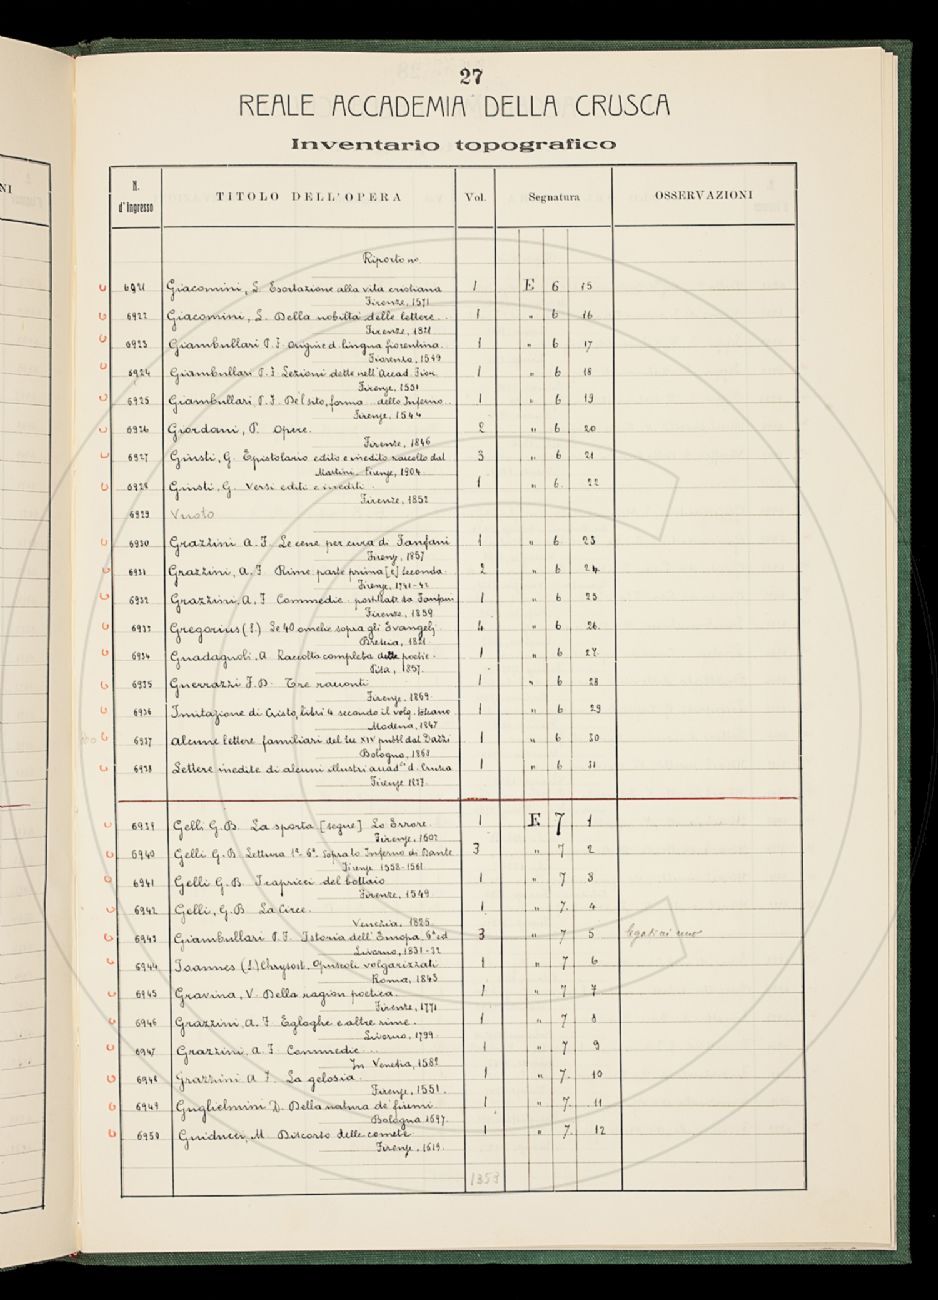 NI
27
REALE ACCADEMIA DELLA CRUSCA
Inventario topografico
N. d'Ingresso TITOLO DELL'OPERA Vol. Segnatura OSSERVAZIONI
Riporto no.
6921 Giacomini, L. Esortazione alla vita cristiana 1 E 6 15
Firenze, 1571
6922 Giacomini, L. Della nobiltà delle lettere. 1 " 6 16
Firenze, 1821
6923 Giambullari P. F. Origine d. lingua fiorentina. 1 " 6 17
Fiorenza, 1549
6924 Giambullari P. F. Lezioni dette nell'Accad. Fior. 1 " 6 18
Firenze, 1551
6925 Giambullari, P. F. Del sito, forma dello Inferno. 1 " 6 19
Firenze, 1544
6926 Giordani, P. Opere. 2 " 6 20
Firenze, 1846
6927 Giusti, G. Epistolario edito e inedito raccolto dal 3 " 6 21
Martini. Firenze, 1904
6928 Giusti, G. Versi editi e inediti 1 " 6. 22
Firenze, 1852
6929 Vuoto
6930 Grazzini A. F. Le cene per cura di Fanfani 1 " 6 23
Firenze, 1857
6931 Grazzini, A. F. Rime parte prima [e] seconda 2 " 6 24
Firenze, 1741-42
6932 Grazzini, A. F. Commedie. postillate da Fanfani 1 " 6 25
Firenze, 1859
6933 Gregorius (S.) Le 40 omelie sopra gli Evangelj 4 " 6 26
Brescia, 1821
6934 Guadagnoli. A. Raccolta completa delle poesie. 1 " 6 27
Pisa, 1837
6935 Guerrazzi F. D. Tre racconti 1 " 6 28
Firenze, 1869
6936 Imitazione di Cristo, libri 4 secondo il volg. toscano 1 " 6 29
Modena, 1847
6937 Alcune lettere familiari del sec XIV pubbl dal Dazzi 1 " 6 30
Bologna, 1868
6938 Lettere inedite di alcuni illustri accadci d. Crusca 1 " 6 31
Firenze 1837
6939 Gelli G. B. La sporta [segue] Lo Errore. 1 E 7 1
Firenze, 1602
6940 Gelli G. B. Lettura 1ª-6ª sopra lo Inferno di Dante 3 " 7 2
Firenze 1558-1561
6941 Gelli G. B. I capricci del bottaio 1 " 7 3
Firenze, 1549
6942 Gelli, G. B. La Circe. 1 " 7. 4
Venezia, 1825
6943 Giambullari P. F. Istoria dell'Europa. 6ª ed 3 " 7 5 legati in uno
Livorno, 1831-32
6944 Joannes (S.) Chrysost. Opuscoli volgarizzati 1 " 7 6
Roma, 1843
6945 Gravina, V. Della ragion poetica. 1 " 7 7
Firenze, 1771
6946 Grazzini, A. F. Egloghe e altre rime. 1 " 7 8
Livorno, 1799
6947 Grazzini, A. F. Commedie 1 " 7 9
In Venetia, 1582
6948 Grazzini A. F. La gelosia. 1 " 7. 10
Firenze, 1551
6949 Guglielmini D. Della natura de' fiumi 1 " 7. 11
Bologna 1697.
6950 Guiducci, M. Discorso delle comete 1 " 7. 12
Firenze, 1619
1353